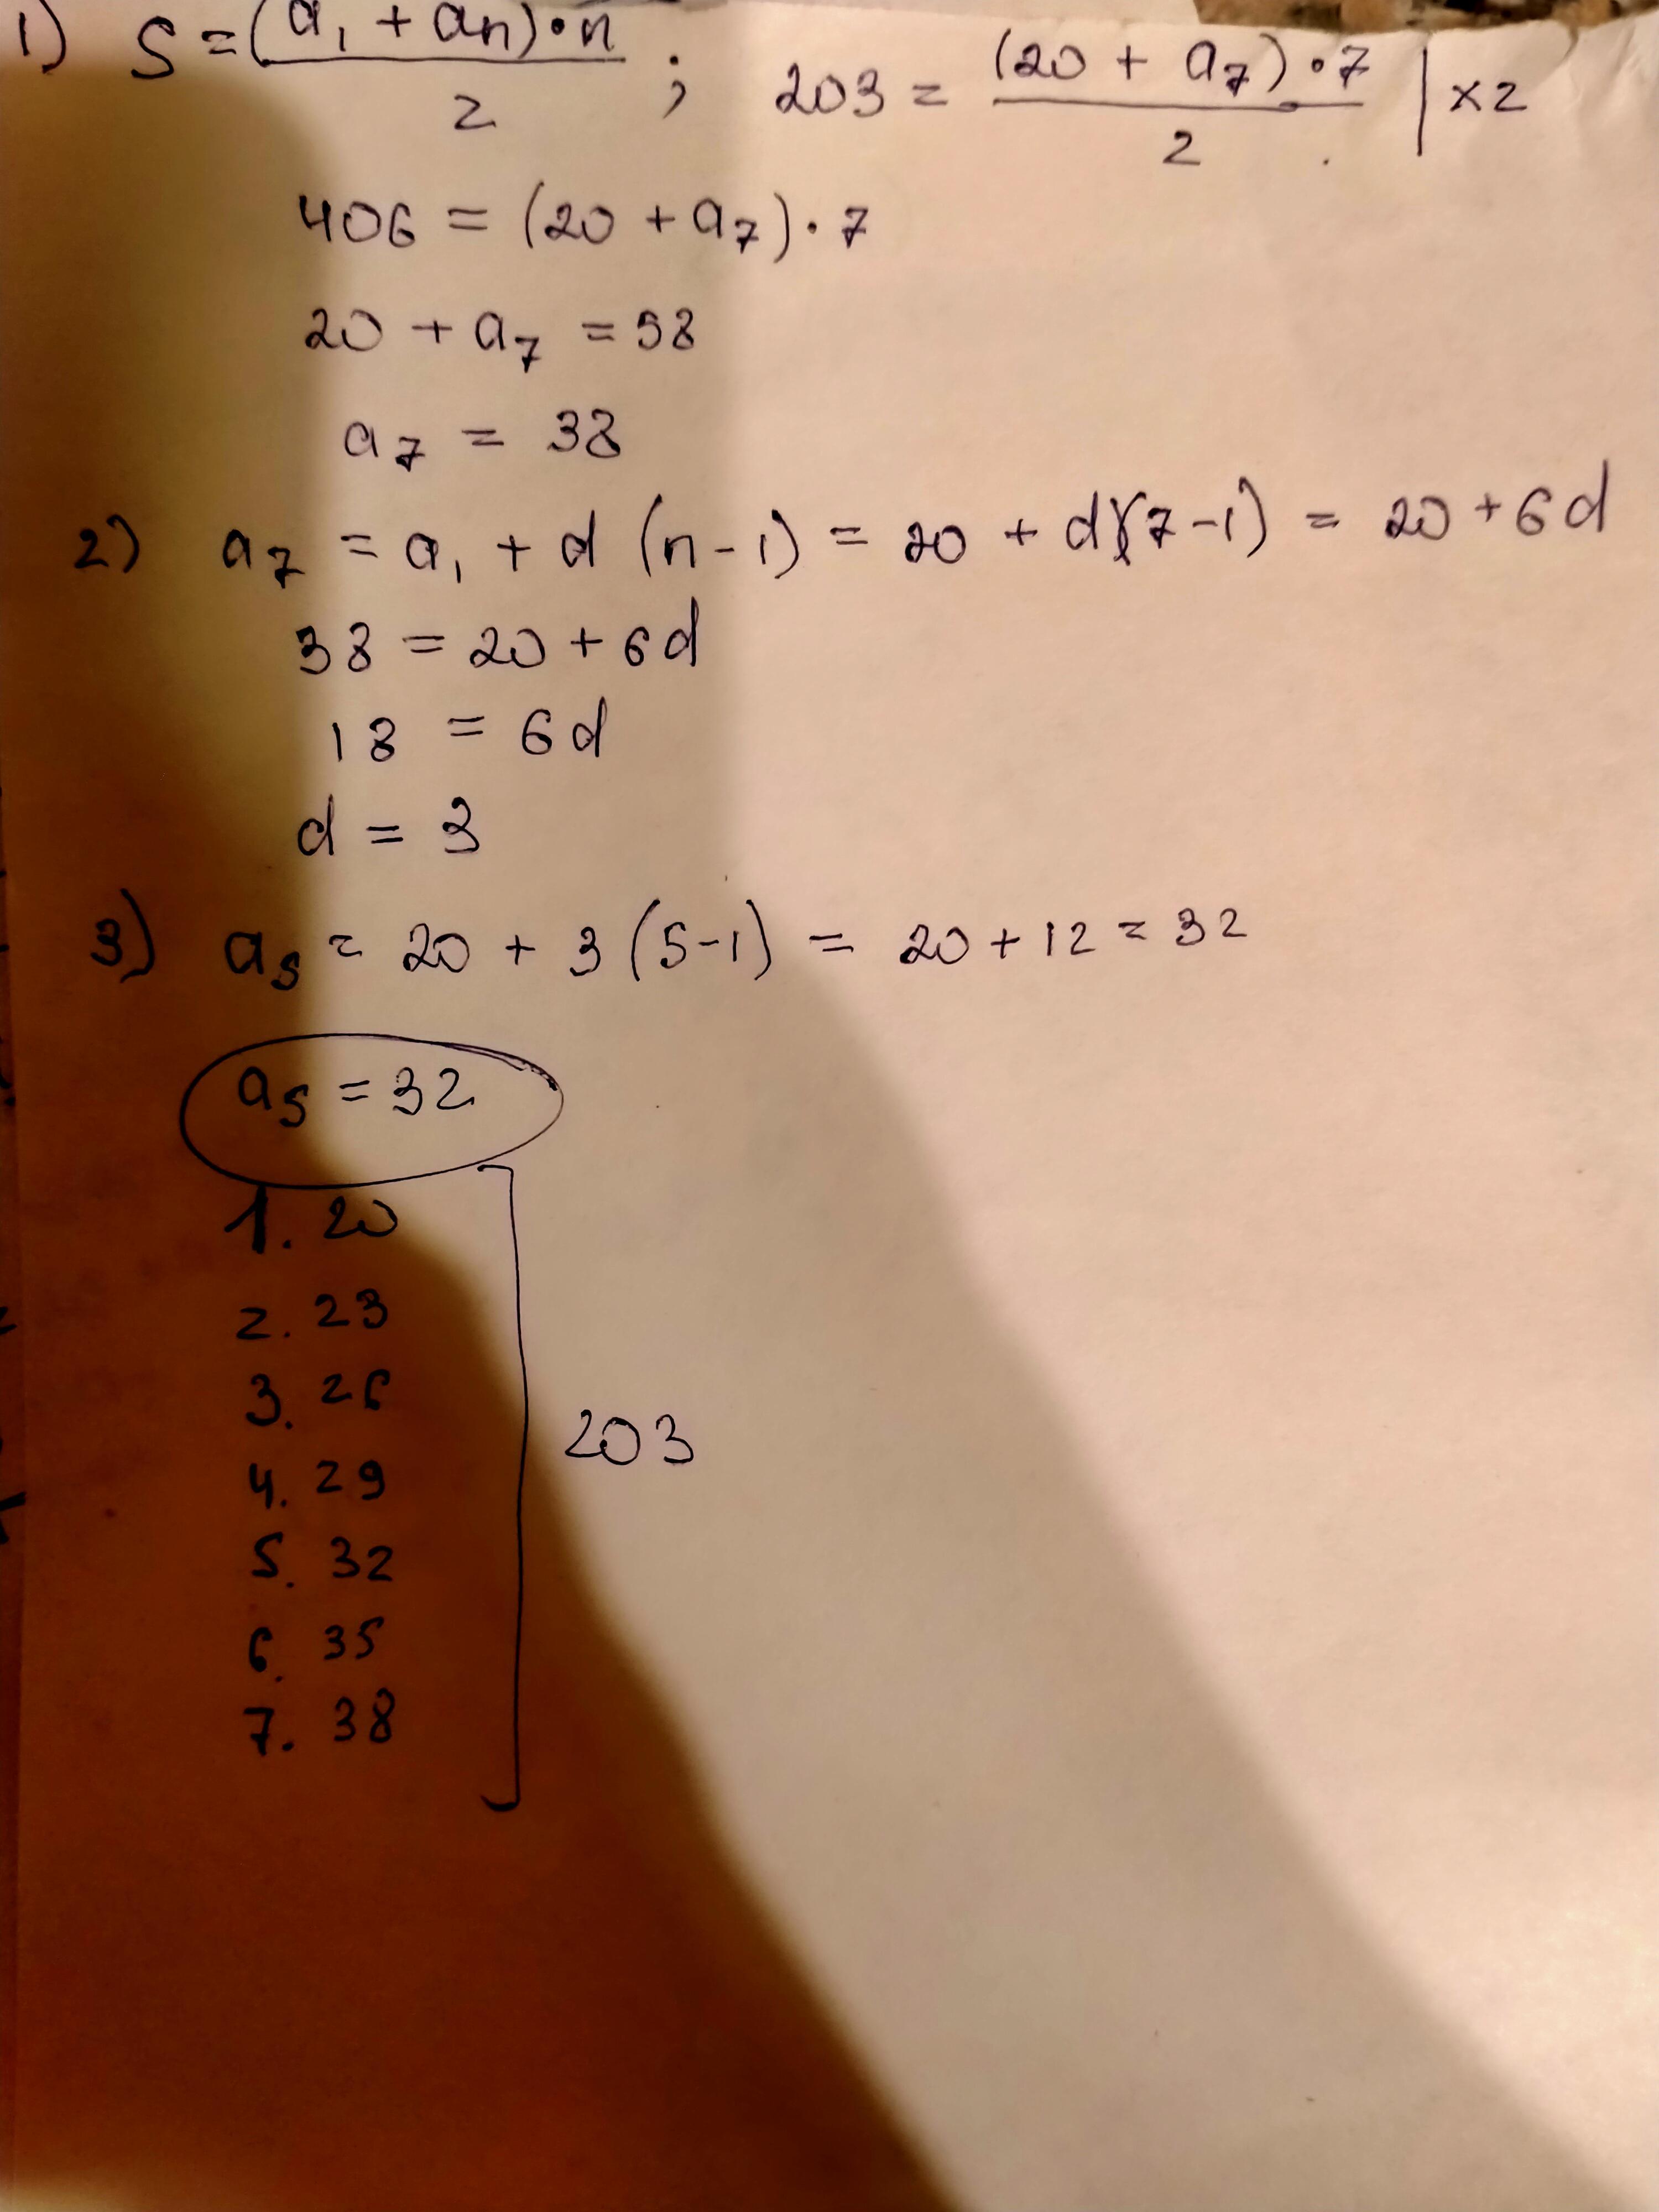 1) S = (a₁ + aₙ)·n / 2 ; 203 = (20 + a₇)·7 / 2 | ×2
406 = (20 + a₇)·7
20 + a₇ = 58
a₇ = 38
2) a₇ = a₁ + d (n-1) = 20 + d(7-1) = 20 + 6d
38 = 20 + 6d
18 = 6d
d = 3
3) a₅ = 20 + 3 (5-1) = 20 + 12 = 32
a₅ = 32
1. 20
2. 23
3. 26
4. 29
5. 32
6. 35
7. 38
203